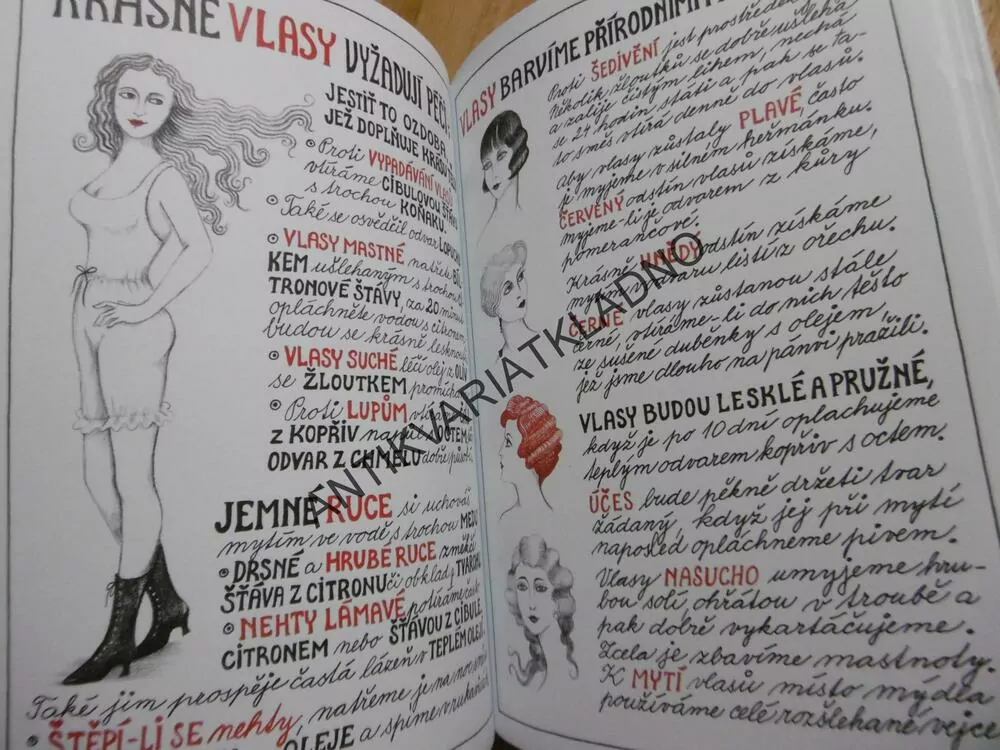 KRÁSNÉ VLASY VYŽADUJÍ PÉČI
JESTIŤ TO OZDOBA,
JEŽ DOPLŇUJE KRÁSU
• Proti VYPADÁVÁNÍ VLASŮ
vtíráme CIBULOVOU ŠŤÁVU
s trochou KOŇAKU.
• Také se osvědčil odvar LOPUCHU
• VLASY MASTNÉ natřete BÍL
KEM ušlehaným s trochou CI
TRONOVÉ ŠŤÁVY, za 20 minut
opláchněte vodou s citronem,
budou se krásně lesknout
• VLASY SUCHÉ léčí olej z OLIV
se ŽLOUTKEM promíchaný
• Proti LUPŮM
z KOPŘIV OCTEM,
ODVAR Z CHMELU dobře působí
JEMNÉ RUCE si uchováš
mytím ve vodě s trochou MEDU
• DRSNÉ a HRUBÉ RUCE změkčí
ŠŤÁVA Z CITRONU či obklady TVAROHU
• NEHTY LÁMAVÉ potíráme často
CITRONEM nebo ŠŤÁVOU Z CIBULE.
Také jim prospěje častá lázeň v TEPLÉM OLEJI.
• ŠTĚPÍ-LI SE nehty, natřeme je na noc
OLEJE a spíme v rukavicích
VLASY BARVÍME PŘÍRODNÍMI
Proti ŠEDIVĚNÍ jest prostředek
Několik žloutků se dobře ušlehá
a zalije čistým lihem, nechá
se 24 hodin státi a pak se ta-
to směs vtírá denně do vlasů.
Aby vlasy zůstaly PLAVÉ, často
je myjeme v silném heřmánku.
ČERVENÝ odstín vlasů získáme,
myjeme-li je odvarem z kůry
pomerančové.
Krásně HNĚDÝ odstín získáme
mytím v varu listí z ořechu.
ČERNÉ vlasy zůstanou stále
černé, vtíráme-li do nich těsto
ze sušené duběnky s olejem,
jež jsme dlouho na pánvi pražili.
VLASY BUDOU LESKLÉ A PRUŽNÉ,
když je po 10 dní oplachujeme
teplým odvarem kopřiv s octem.
ÚČES bude pěkně držeti tvar
žádaný, když jej při mytí
naposled opláchneme pivem.
Vlasy NASUCHO umyjeme hru-
bou solí, ohřátou v troubě a
pak dobře vykartáčujeme.
Zcela je zbavíme mastnoty.
K MYTÍ vlasů místo mýdla
používáme celé rozšlehané vejce
ANTIKVARIATKLADNO